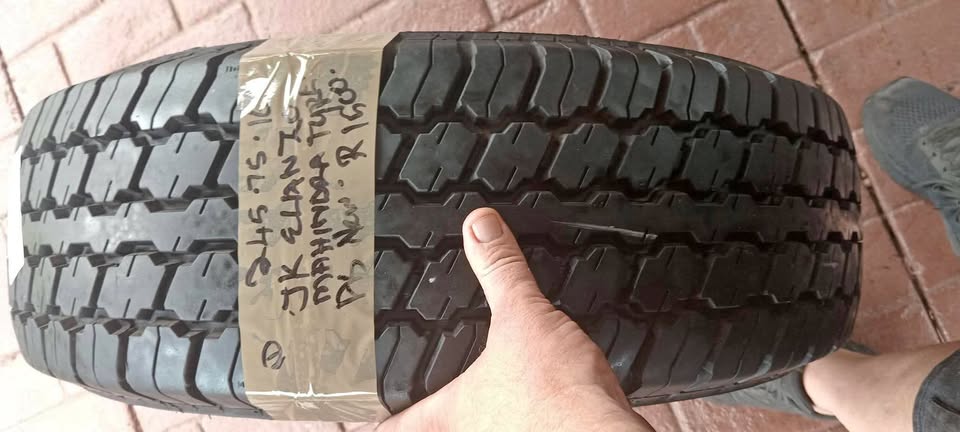 245.75.16
JK ELIANZO
MAHINDRA TYRE
New. R 1600.